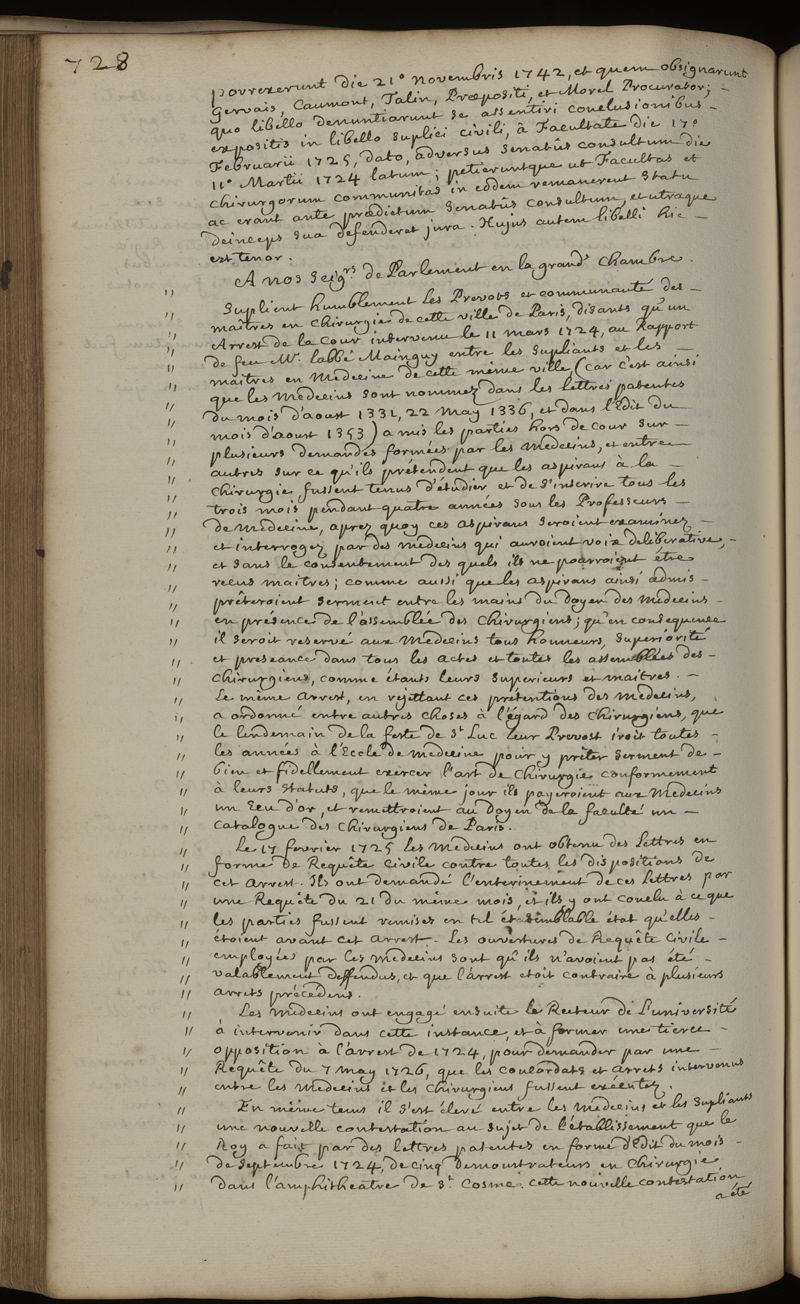 728
porrexerunt die 21° novembris 1742, et quem obsignarunt
Gervais, Caumont, Talin, Præpositi, et Morel Procurator; -
quo libello denuntiarunt se assentiri conclusionibus -
expositis in libello suplici civili, â Facultate die 17°
Februarii 1725, dato, adversus senatûs consultum die
11° Martii 1724 latum; petieruntque ut Facultas et
chirurgorum communitas in eodem remanerent statu
ac erant ante prædictum senatûs consultum, et utraque
deinceps sua defenderet jura. Hujus autem libelli hic -
est tenor.
A nos seig.rs de Parlement en la grand.e chambre.
" Suplient humblement Les Prevots et communauté des -
" maîtres en chirurgie de cette ville de Paris, disants qu'un
" Arrest de la cour intervenu le 11 mars 1724, au Rapport
" de feu M.r labbé Mainguy entre les supliants et les -
" maîtres en Medecine de cette même ville (car c'est ainsi
" que les Medecins sont nommez dans les lettres patentes
" du mois d'aoust 1331, 22 may 1336, et dans l'Edit du
" mois d'aoust 1353) a mis les parties hors de cour sur -
" plusieurs demandes formées par les medecins, et entre
" autres sur ce qu'ils prétendent que les aspirans à la -
" chirurgie fussent tenus d'étudier et de s'inscrire tous les
" trois mois pendant quatre années sous les Professeurs -
" de medecine, aprez quoy ces aspirans seroient examinez -
" et interrogez par des medecins qui auroient voix deliberative, -
" et sans le consentement des quels ils ne pourroient être
" recus maitres; comme aussi que les aspirans ainsi admis -
" prêteroient serment entre les mains du Doyen des medecins -
" en présence de l'assemblée des chirurgiens; qu'en consequence
" il seroit reservé aux medecins tous honneurs, superiorité
" et preseance dans tous les actes et toutes les assemblées des -
" chirurgiens, comme étants leurs superieurs et maitres. -
" Le même arrest, en rejettant ces prétentions des medecins,
" a ordonné entre autres choses à l'égard des chirurgiens, que
" le lendemain de la feste de s.t Luc leur Prevost iroit toutes -
" les années à l'Ecole de medecine pour y prêter serment de -
" bien et fidellement exercer l'art de chirurgie conformement
" à leurs statuts, que le même jour ils payeroient aux Medecins
" un Ecu d'or, et remettroient au Doyen de la faculté un -
" catalogue des chirurgiens de Paris.
" Le 17 fevrier 1725 les medecins ont obtenu des Lettres en
" forme de Requête civile contre toutes les dispositions de
" cet arrest. Ils ont demandé l'enterinement de ces Lettres par
" une Requête du 21 du même mois, et ils y ont conclu à ce que
" les parties fussent remises en tel et semblable état qu'elles -
" étoient avant cet arrest. Les ouvertures de Requête civile -
" employées par les medecins sont qu'ils n'avoient pas été -
" valablement deffendus, et que l'arrest etoit contraire à plusieurs
" arrets précedens.
" Les Medecins ont engagé ensuite le Recteur de L'université
" à intervenir dans cette instance, et à former une tierce -
" opposition à l'arrest de 1724, pour demander par une -
" Requête du 7 may 1726, que les concordats et arrets intervenus
" entre les medecins et les chirurgiens fussent executez.
" En même tems il s'est élevé entre les medecins et les supliants
" une nouvelle contestation au sujet de l'établissement que le
" Roy a fait par des lettres patentes en forme d'Edit du mois -
" de septembre 1724, de cinq demonstrateurs en chirurgie
" dans l'amphitheatre de s.t Cosme. cette nouvelle contestation
a été